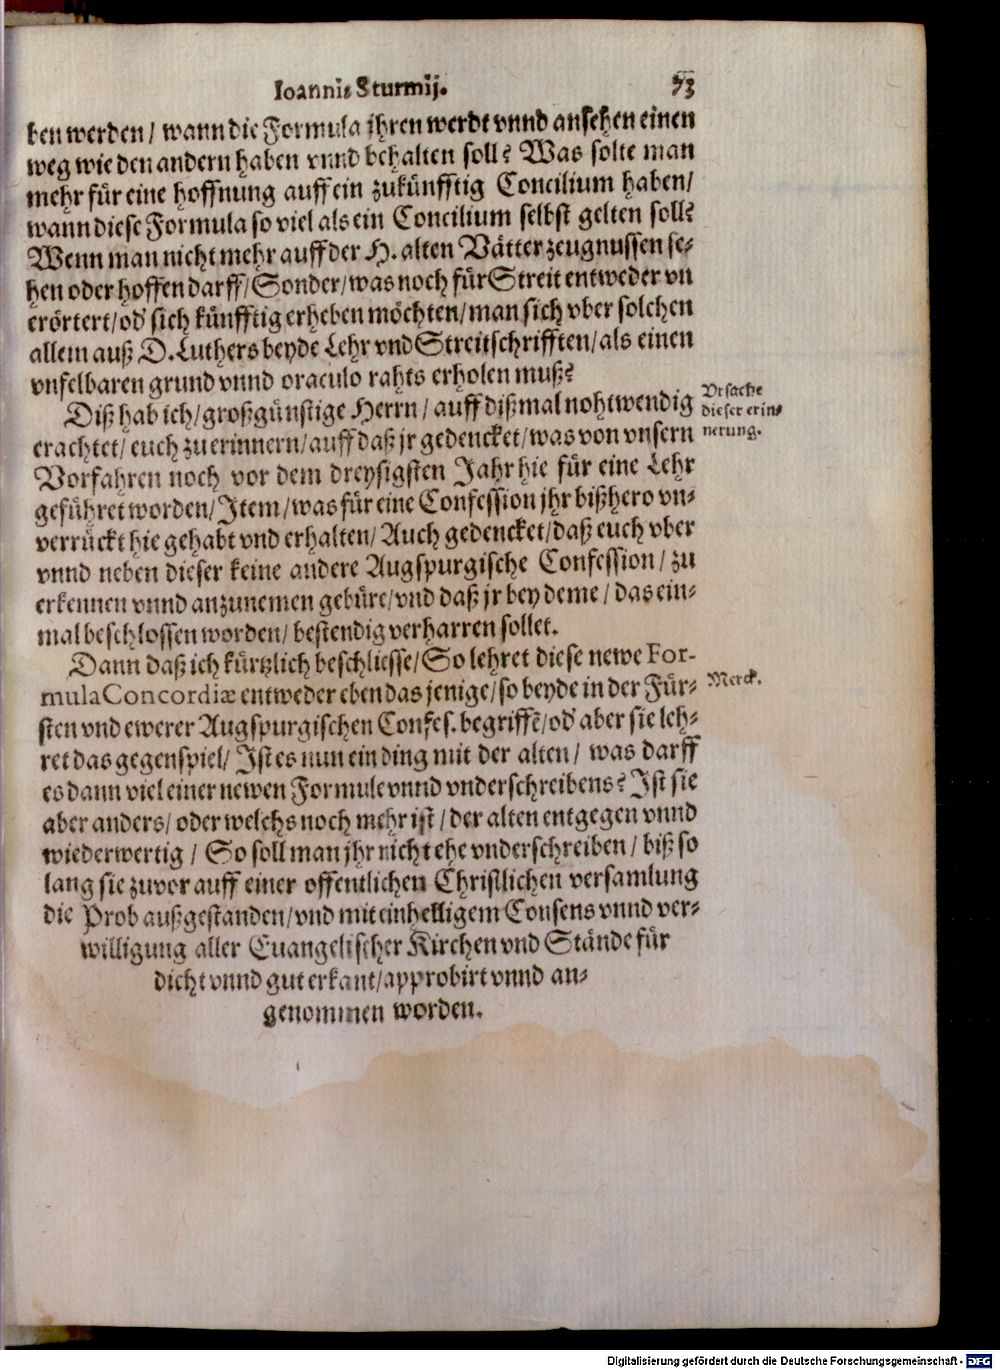 Ioannis Sturmij. 73
ben werden/ wann die Formula jhren werdt vnnd ansehen einen
weg wie den andern haben vnnd behalten soll? Was solte man
mehr für eine hoffnung auff ein zukünfftig Concilium haben/
wann diese Formula so viel als ein Concilium selbst gelten soll?
Wenn man nicht mehr auff der H. alten Vätter zeugnussen se-
hen oder hoffen darff/ Sonder/ was noch für Streit entweder vn
erörtert/ od' sich künfftig erheben möchten/ man sich vber solchen
allein auß D. Luthers beyde Lehr vnd Streitschrifften/ als einen
vnfelbaren grund vnnd oraculo rahts erholen muß?
Diß hab ich/ großgünstige Herrn/ auff dißmal nohtwendig
erachtet/ euch zu erinnern/ auff daß jr gedencket/ was von vnsern
Vorfahren noch vor dem dreysigsten Jahr hie für eine Lehr
geführet worden/ Item/ was für eine Confession jhr bißhero vn-
verrückt hie gehabt vnd erhalten/ Auch gedencket/ daß euch vber
vnnd neben dieser keine andere Augspurgische Confession/ zu
erkennen vnnd anzunemen gebüre/ vnd daß jr bey deme/ das ein-
mal beschlossen worden/ bestendig verharren sollet.
Vrsache
dieser erin-
nerung.
Dann daß ich kürtzlich beschliesse/ So lehret diese newe For-
mula Concordiæ entweder eben das jenige/ so beyde in der Für-
sten vnd ewerer Augspurgischen Confes. begriffē/ od' aber sie leh-
ret das gegenspiel/ Ist es nun ein ding mit der alten/ was darff
es dann viel einer newen Formule vnnd vnderschreibens? Ist sie
aber anders/ oder welchs noch mehr ist/ der alten entgegen vnnd
wiederwertig/ So soll man jhr nicht ehe vnderschreiben/ biß so
lang sie zuvor auff einer offentlichen Christlichen versamlung
die Prob außgestanden/ vnd mit einhelligem Consens vnnd ver-
willigung aller Euangelischer Kirchen vnd Stände für
dicht vnnd gut erkant/ approbirt vnnd an-
genommen worden.
Merck.
Digitalisierung gefördert durch die Deutsche Forschungsgemeinschaft - DFG